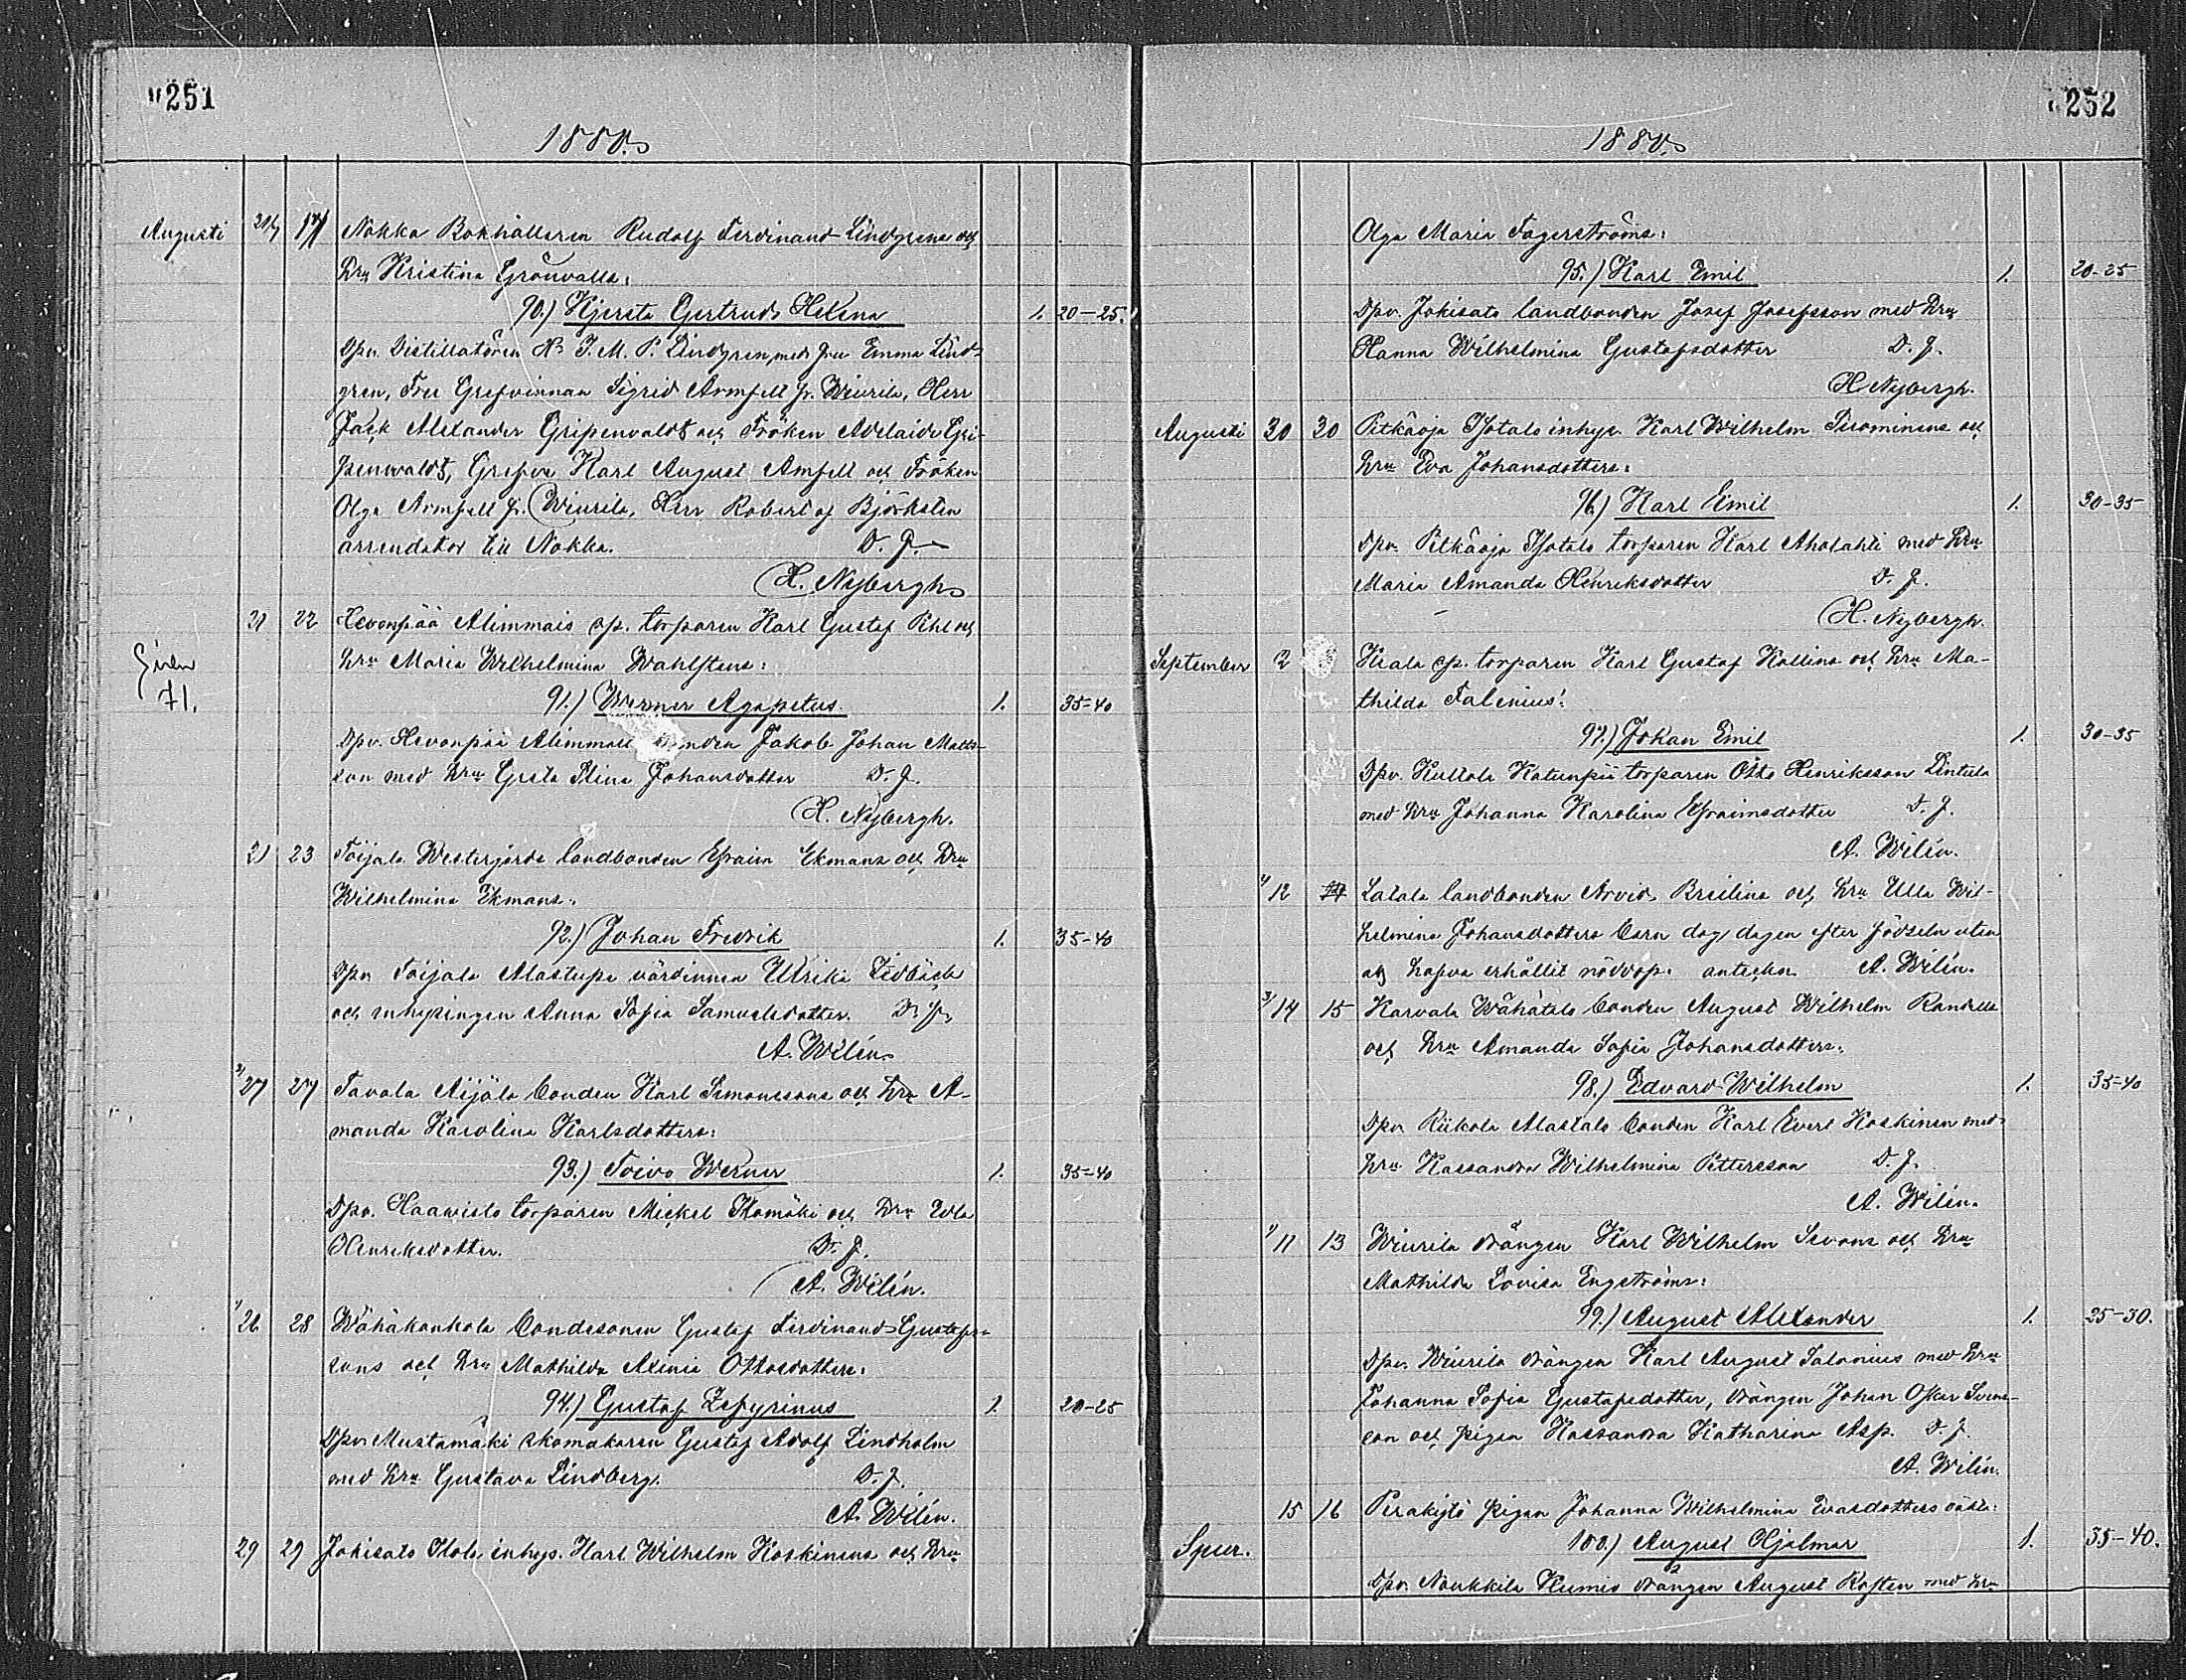 251
1880.
Augusti 21/7 17/7 Nokka Bokhållaren Rudolf Ferdinand Lindgrens och
hru Kristina Grönvalls:
90.) Kjersta Gertrud Helena 1. 20-25.
Dpv. Distillatören Hr J. M. P. Lindgren, med fru Emma Lind-
gren, Fru Grefvinnan Sigrid Armfelt fr. Wiurila, Herr
Jack Alexander Gripenvaldt och Fröken Adelaide Gri-
penwaldt, Grefve Karl August Amfelt och Fröken
Olga Armfelt fr. Wiurila, Herr Robert af Björksten
arrendator till Nokka. D. J.
H. Nybergh
21 22 Hevonpää Alimmais sp. torparen Karl Gustaf och
hru Maria Wilhelmina Wahlstens:
71.
91.) Werner Agapetus 1. 35-40
Dpv. Hevonpää Jakob Johan Matts-
son med hru Greta Stina Johansdotter D. J.
H. Nybergh.
21 23 Toijala Westerjerda landbonden Efraim Ekmans och hru
Wilhelmina Ekmans:
92.) Johan Fredrik 1. 35-40
Dpv. Toijala Alastupa värdinnan Ulrika Lidbäck
och inhysingen Anna Sofia Samuelsdotter. D. J.
A. Wilén.
27 27 Tavola Äijälä bonden Karl Simonssons och hru A-
manda Karolina Karlsdotters:
93.) Toivo Werner 1. 35-40
Dpv. Haavisto torparen Mickel Komäki och hru Ulla
Henriksdotter. D. J.
A. Wilén.
26 28 Wähäkankola bondesonen Gustaf Ferdinand Gustafs-
sons och hru Mathilda Axinia Ottosdotters:
94.) Gustaf Zefyrinus 1. 20-25
Dpv. Mustamäki skomakaren Gustaf Adolf Lindholm
med hru Gustava Lindberg. D. J.
A. Wilén.
29 29 Jokisalo Iso inhys. Karl Wilhelm Koskinens och hru
252
1880.
Olga Maria Fagerströms:
95.) Karl Emil 1. 20-25
Dpv. Jokisalo landbonden Josef Josefsson med hru
Hanna Wilhelmina Gustafsdotter D. J.
H. Nybergh.
Augusti 30 30 Pitkäoja Isotalo inhys. Karl Wilhelm Tuominens och
hru Eva Johansdotters:
96.) Karl Emil 1. 30-35
Dpv. Pitkäoja Isotalo torparen Karl Aholahti med hru
Maria Amanda Henriksdotter D. J.
H. Nybergh.
September 2 sp. torparen Karl Gustaf Kallins och hru Ma-
thilda Falenius:
97.) Johan Emil 1. 30-35
Dpv. Kullola Katunpii torparen Otto Henriksson Lintula
med hru Johanna Karolina Efraimsdotter D. J.
A. Wilén.
12 Lalala landbonden Arvid och hru Ulla Wil-
helmina Johansdotters barn dog dagen efter födseln utan
att hafva erhållit nöddop. anteckn. A. Wilén.
14 15 Karvala Wähätalo bonden August Wilhelm Randells
och hru Amanda Sofia Johansdotters:
98.) Edvard Wilhelm 1. 35-40
Dpv. Riikola Alastalo bonden Karl Evert Koskinen med
hru Kassandra Wilhelmina Pettersson D. J.
A. Wilén.
11 13 Wiurila drängen Karl Wilhelm Sevons och hru
Mathilda Lovisa Engströms:
99.) August Alexander 1. 25-30.
Dpv. Wiurila drängen Karl August Salonius med hru
Johanna Sofia Gustafsdotter, drängen Johan Oskar Svens-
son och pigan Kassandra Katharina Asp. D. J.
A. Wilén.
15 16 Peräkylä pigan Johanna Wilhelmina Evasdotters oäkta:
Spur. 100.) August Hjalmar 1. 35-40.
Dpv. Naukkila Kumio drängen August Rosten med hru